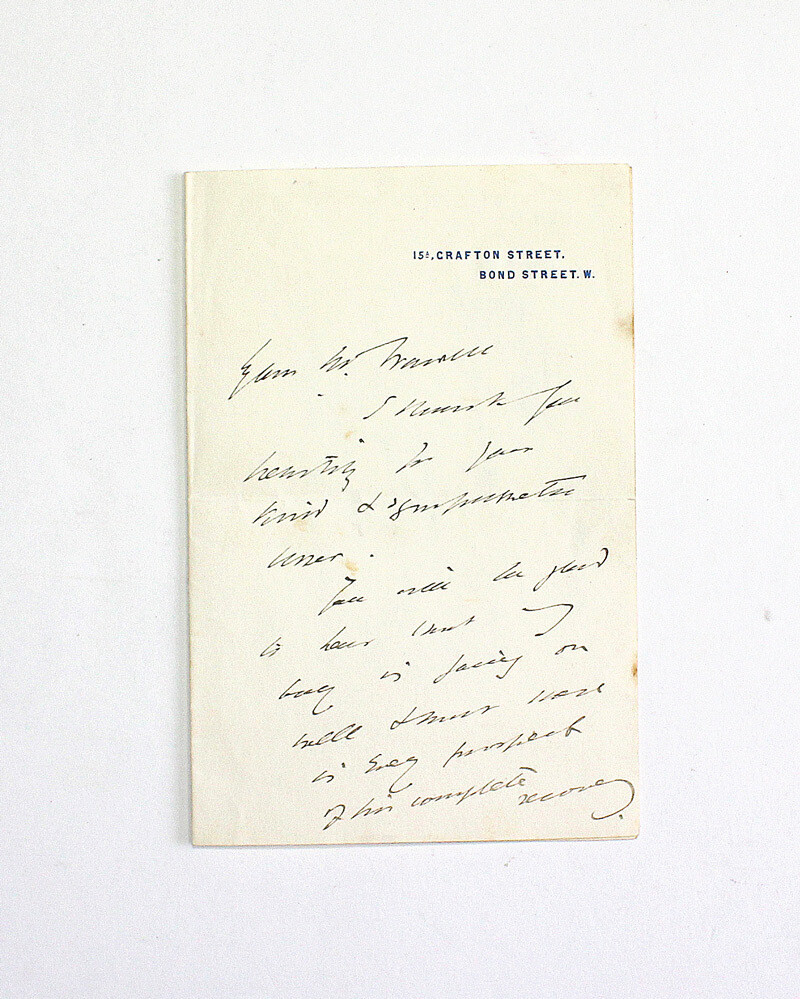 15A, GRAFTON STREET,
BOND STREET. W.
Dear Mr.
I thank you
heartily for your
kind & sympathetic
letter.
You will be glad
to hear that my
boy is going on
well & that there
is every prospect
of his complete recovery.